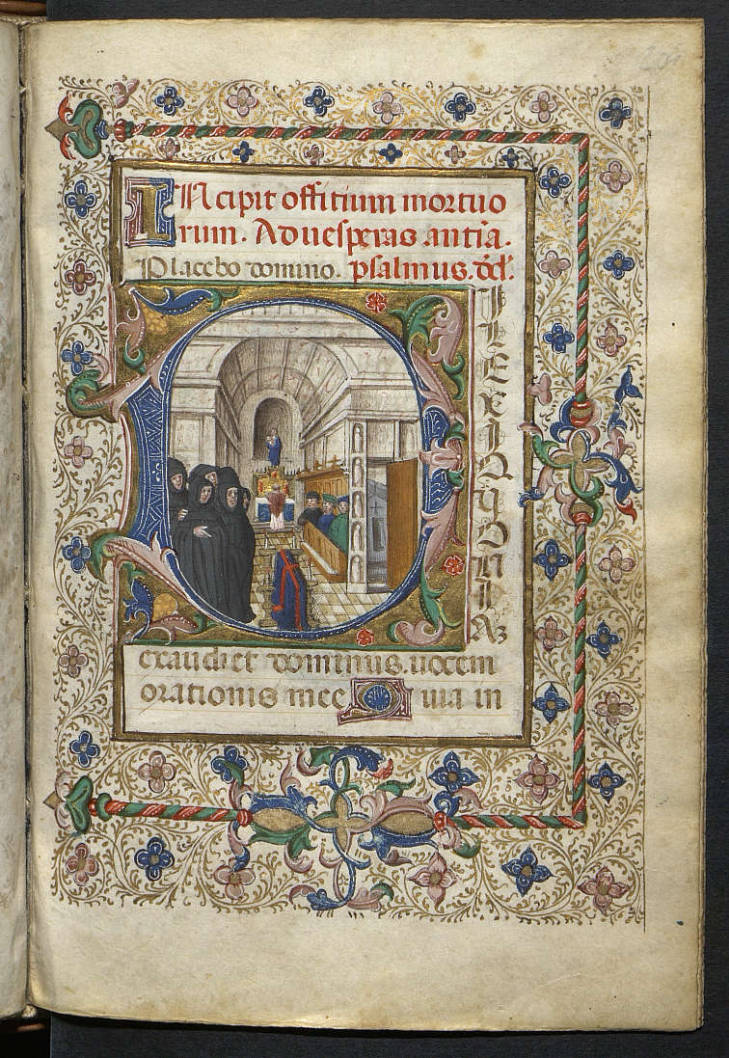 INcipit offitium mortuo
rum. Ad uesperas antīa.
Placebo domino. psalmus. dd̄.
DILEXI QUONIAꝫ
exaudiet dominus. uocem
orationis mee Quia in